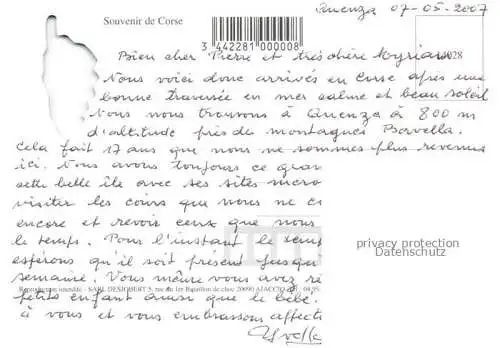 Souvenir de Corse
Quenza 07-05-2007
3 442281 000008
028
Bien cher Pierre et très chère Myriam
Nous voici donc arrivés en Corse après une
bonne traversée en mer calme et beau soleil
Nous nous trouvons à Quenza à 800 m
d'altitude près de montagnes Bavella.
Cela fait 17 ans que nous ne sommes plus revenus
ici. Nous avons toujours ce gran
cette belle île avec ses sites
visiter les coins que nous ne c
encore et revoir ceux que nous
le temps. Pour l'instant le temp
espérons qu'il soit présent jusqu
semaine. Vous même vous avez
petits enfant ainsi que le bébé.
à vous et vous embrassons affect
Yvette
privacy protection
Datenschutz
Reproduction interdite - SARL DESJOBERT 5, rue du 1er Bataillon de choc 20090 AJACCIO